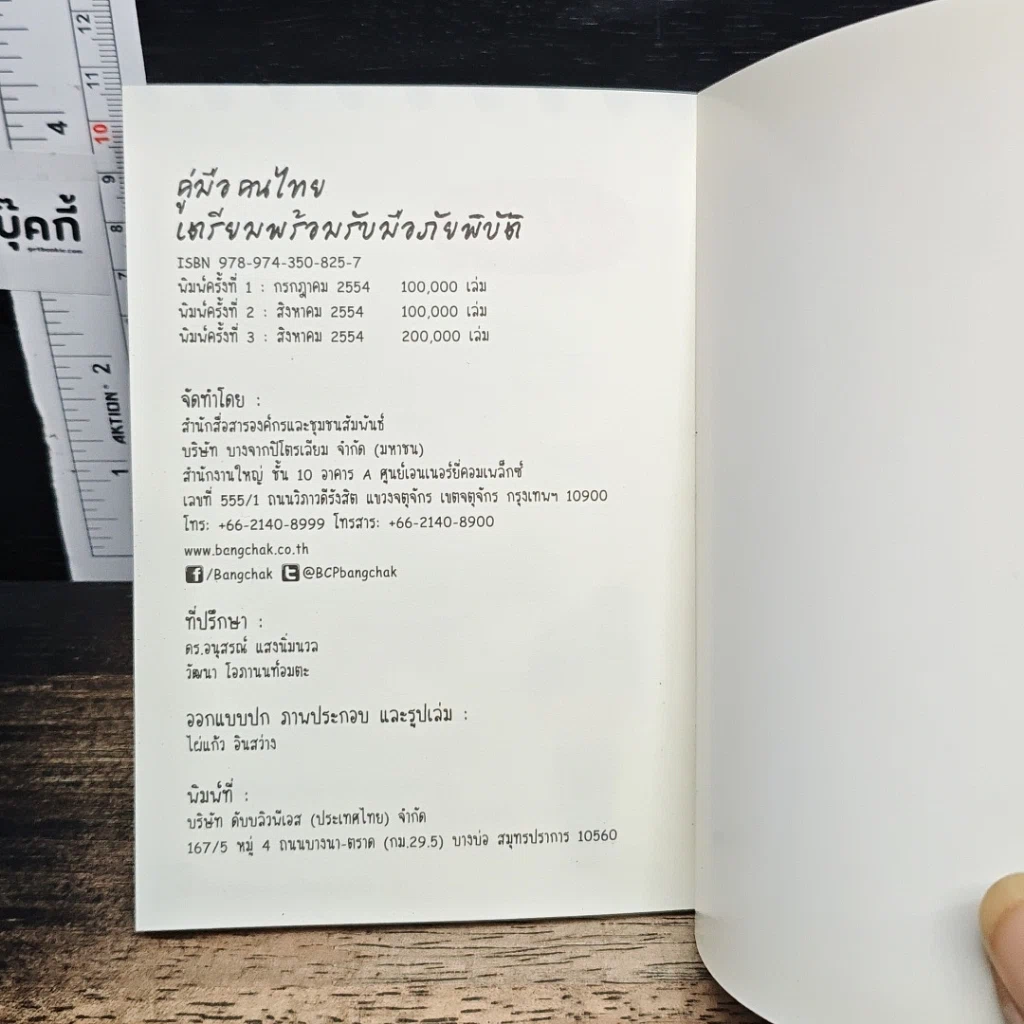 คู่มือ คนไทย
เตรียมพร้อมรับมือภัยพิบัติ
ISBN 978-974-350-825-7
พิมพ์ครั้งที่ 1 : กรกฎาคม 2554 100,000 เล่ม
พิมพ์ครั้งที่ 2 : สิงหาคม 2554 100,000 เล่ม
พิมพ์ครั้งที่ 3 : สิงหาคม 2554 200,000 เล่ม
จัดทำโดย :
สำนักสื่อสารองค์กรและชุมชนสัมพันธ์
บริษัท บางจากปิโตรเลียม จำกัด (มหาชน)
สำนักงานใหญ่ ชั้น 10 อาคาร A ศูนย์เอนเนอร์ยี่คอมเพล็กซ์
เลขที่ 555/1 ถนนวิภาวดีรังสิต แขวงจตุจักร เขตจตุจักร กรุงเทพฯ 10900
โทร: +66-2140-8999 โทรสาร: +66-2140-8900
www.bangchak.co.th
f /Bangchak t @BCPbangchak
ที่ปรึกษา :
ดร.อนุสรณ์ แสงนิ่มนวล
วัฒนา โอภานนท์อมตะ
ออกแบบปก ภาพประกอบ และรูปเล่ม :
ไผ่แก้ว อินสว่าง
พิมพ์ที่ :
บริษัท ดับบลิวพีเอส (ประเทศไทย) จำกัด
167/5 หมู่ 4 ถนนบางนา-ตราด (กม.29.5) บางบ่อ สมุทรปราการ 10560
12
11
10
9
8
7
4
2
1
AKTION
บุ๊คกี้